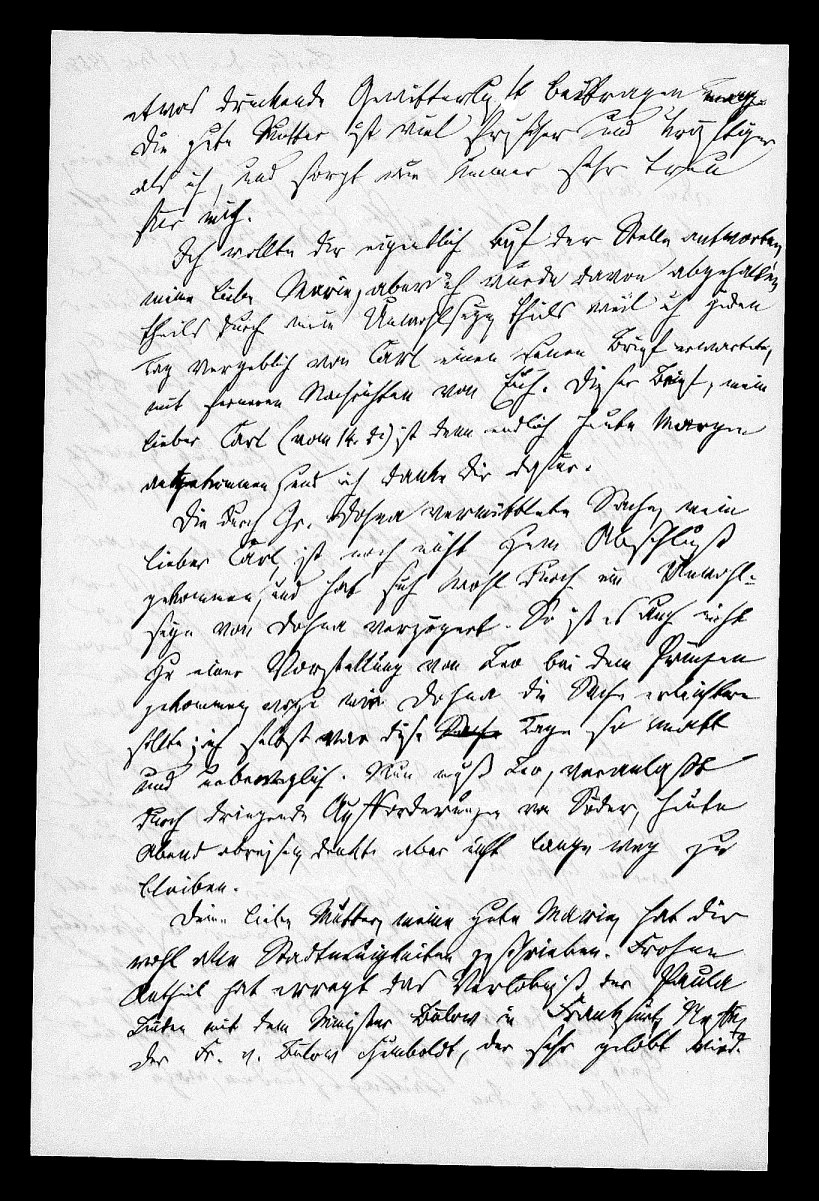 etwas drückende Gewitterluft beitragen mag.
Die gute Mutter ist viel frischer und kräftiger
als ich, und sorgt wie immer sehr treu
für mich.
Ich wollte dir eigentlich auf der Stelle antworten,
meine liebe Marie, aber ich wurde davon abgehalten,
theils durch mein Unwohlseyn theils weil ich jeden
Tag vergeblich von Carl einen Brief erwartete,
mit ferneren Nachrichten von Euch. Dieser Brief, mein
lieber Carl (vom 14. d.) ist denn endlich heute Morgen
angekommen und ich danke dir dafür.
Die durch Gr. Dohna vermittelte Sache, mein
lieber Carl ist noch nicht zum Abschluß
gekommen, und hat sich wohl durch ein Unwohl-
seyn von Dohna verzögert. So ist es auch nicht
zu einer Vorstellung von Leo bei dem Prinzen
gekommen, wozu mir Dohna die Sache erleichtern
sollte; ich selbst war diese Tage so matt
und unbeweglich. Nun muß Leo, veranlaßt
durch dringende Aufforderungen von Söder, heute
Abend abreisen, denkt aber nicht lange weg zu
bleiben.
Deine liebe Mutter, meine gute Marie, hat dir
wohl alle Stadtneuigkeiten geschrieben. Frohen
Antheil hat erregt das Verlöbniß der Paula
Linden mit dem Minister Bülow in Frankfurt, Neffe
der Fr. v. Bülow Humboldt, der sehr gelobt wird.